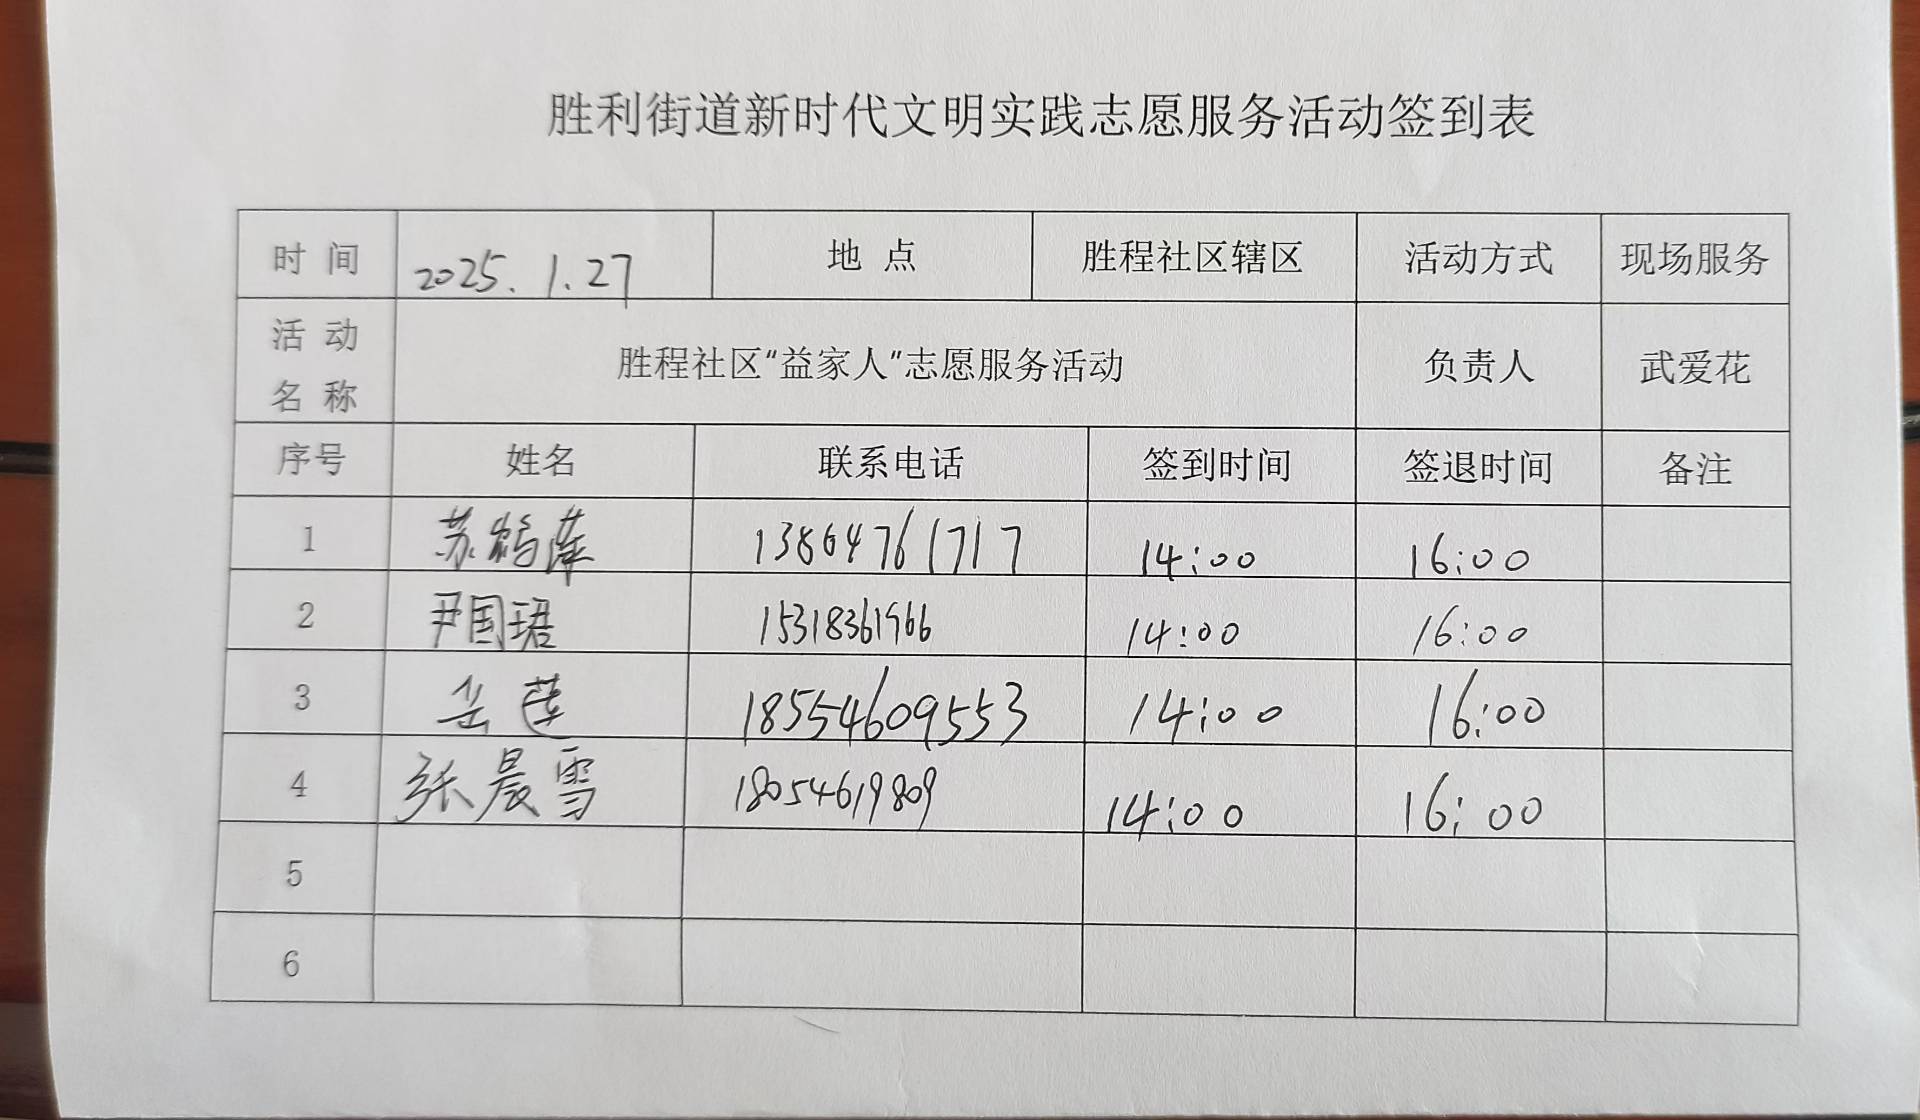 胜利街道新时代文明实践志愿服务活动签到表
时 间 2025.1.27 地 点 胜程社区辖区 活动方式 现场服务
活 动 名 称 胜程社区“益家人”志愿服务活动 负责人 武爱花
序号 姓名 联系电话 签到时间 签退时间 备注
1 苏鹤萍 13864761717 14:00 16:00
2 尹国珺 15318361966 14:00 16:00
3 岳莲 18554609553 14:00 16:00
4 张晨雪 18054619809 14:00 16:00
5
6